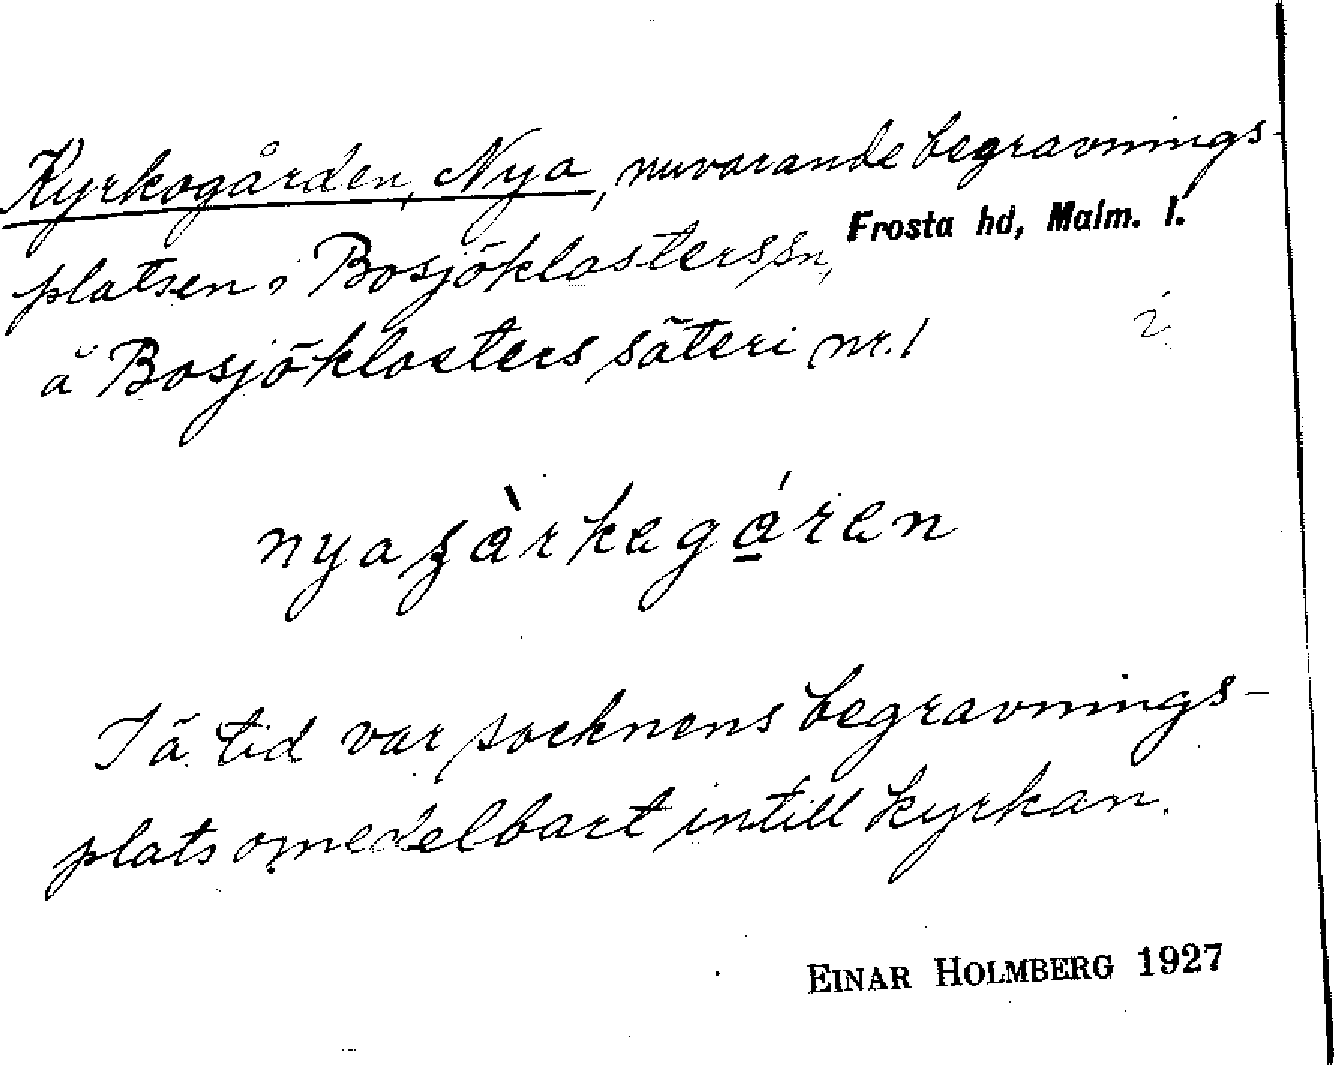 Kyrkogården, Nya, nuvarande begravnings-
platsen i Bosjöklosters sn, Frosta hd, Malm. l.
å Bosjöklosters säteri nr. 1
I ä. tid var socknens begravnings-
plats omedelbart intill kyrkan.
EINAR HOLMBERG 1927